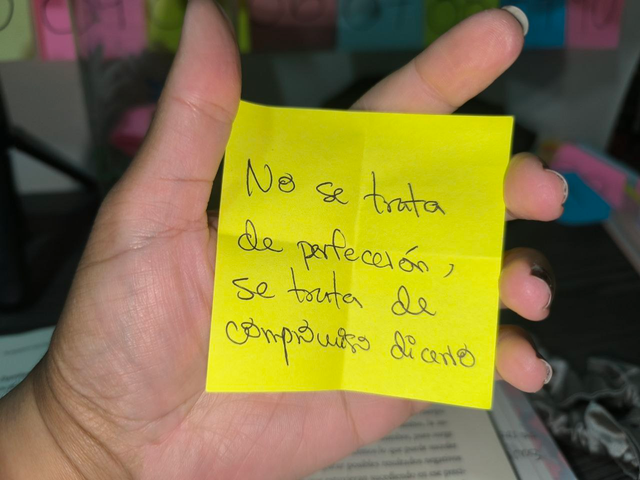 No se trata
de perfección,
se trata de
compromiso diario